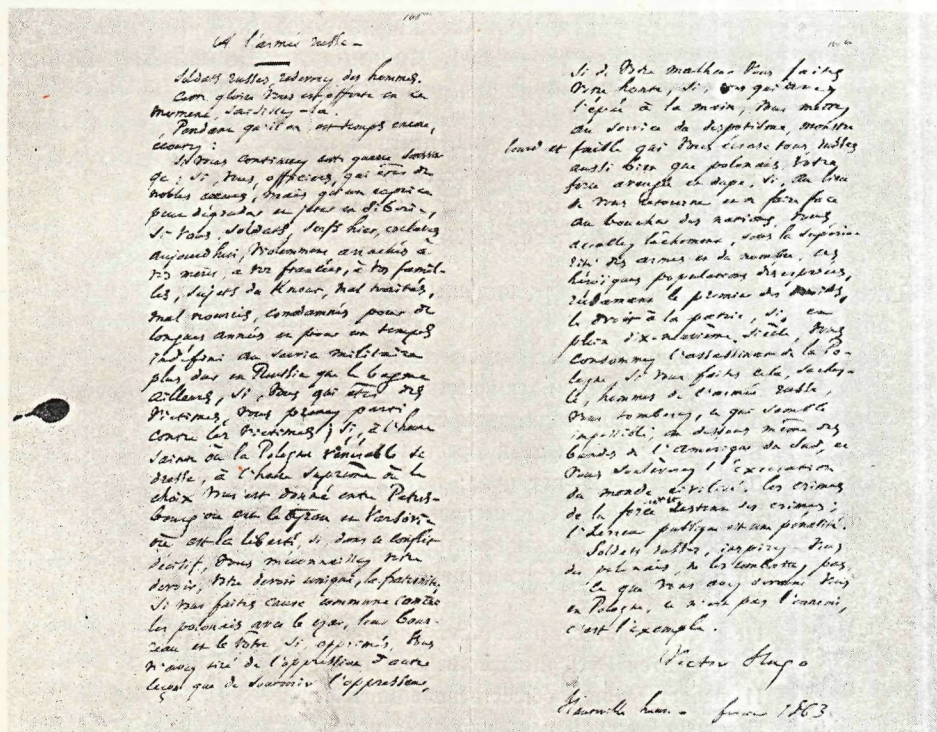 105
A l'armée russe –
Soldats russes, redevenez des hommes.
Cette gloire vous est offerte en ce
moment, saisissez-la.
Pendant qu'il en est temps encore,
écoutez :
Si vous continuez cette guerre sauva-
ge ; si, vous, officiers, qui êtes de
nobles cœurs, mais qu'un caprice
peut dégrader et jeter en Sibérie,
si vous, soldats, serfs hier, esclaves
aujourd'hui, violemment arrachés à
vos mères, à vos fiancées, à vos famil-
les, sujets du knout, mal traités,
mal nourris, condamnés pour de
longues années et pour un temps
indéfini au service militaire
plus dur en Russie que le bagne
ailleurs, si, vous qui êtes des
victimes, vous prenez parti
contre les victimes ; si, à l'heure
sainte où la Pologne vénérable se
dresse, à l'heure suprême où le
choix vous est donné entre Péters-
bourg où est le tyran et Varsovie
où est la liberté, si, dans ce conflit
décisif, vous méconnaissez votre
devoir, votre devoir unique, la fraternité,
si vous faites cause commune contre
les polonais avec le czar, leur bour-
reau et le vôtre, si, opprimés, vous
n'avez tiré de l'oppression d'autre
leçon que de soutenir l'oppresseur,
si de votre malheur vous faites
votre honte, si, vous qui avez
l'épée à la main, vous mettez
au service du despotisme, monstre
lourd et faible qui vous écrase tous, russes
aussi bien que polonais, votre
force aveugle et dupe, si, au lieu
de vous retourner et de faire face
au boucher des nations, vous
accablez lâchement, sous la supério-
rité des armes et du nombre, ces
héroïques populations désespérées,
réclamant le premier des droits,
le droit à la patrie, si, en
plein dix-neuvième siècle, vous
consommez l'assassinat de la Po-
logne, si vous faites cela, sachez-
le, hommes de l'armée russe,
vous tomberez, ce qui semble
impossible, au dessous même des
bandes de l'Amérique du Sud, et
vous soulèverez l'exécration
du monde civilisé. Les crimes
de la force sont et restent des crimes ;
l'horreur publique est une pénalité.
Soldats russes, inspirez-vous
des polonais, ne les combattez pas.
Ce que vous avez devant vous
en Pologne, ce n'est pas l'ennemi,
c'est l'exemple.
Victor Hugo
Hauteville house – février 1863.